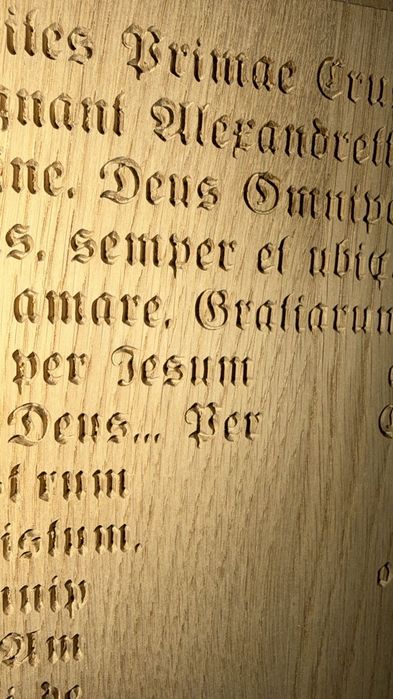 ites Primae Cru
gnant Alexandrett
ne. Deus Omnipo
s. semper et ubiq
amare. Gratiarum
per Jesum
Deus... Per
st rum
istum.
nip
Am